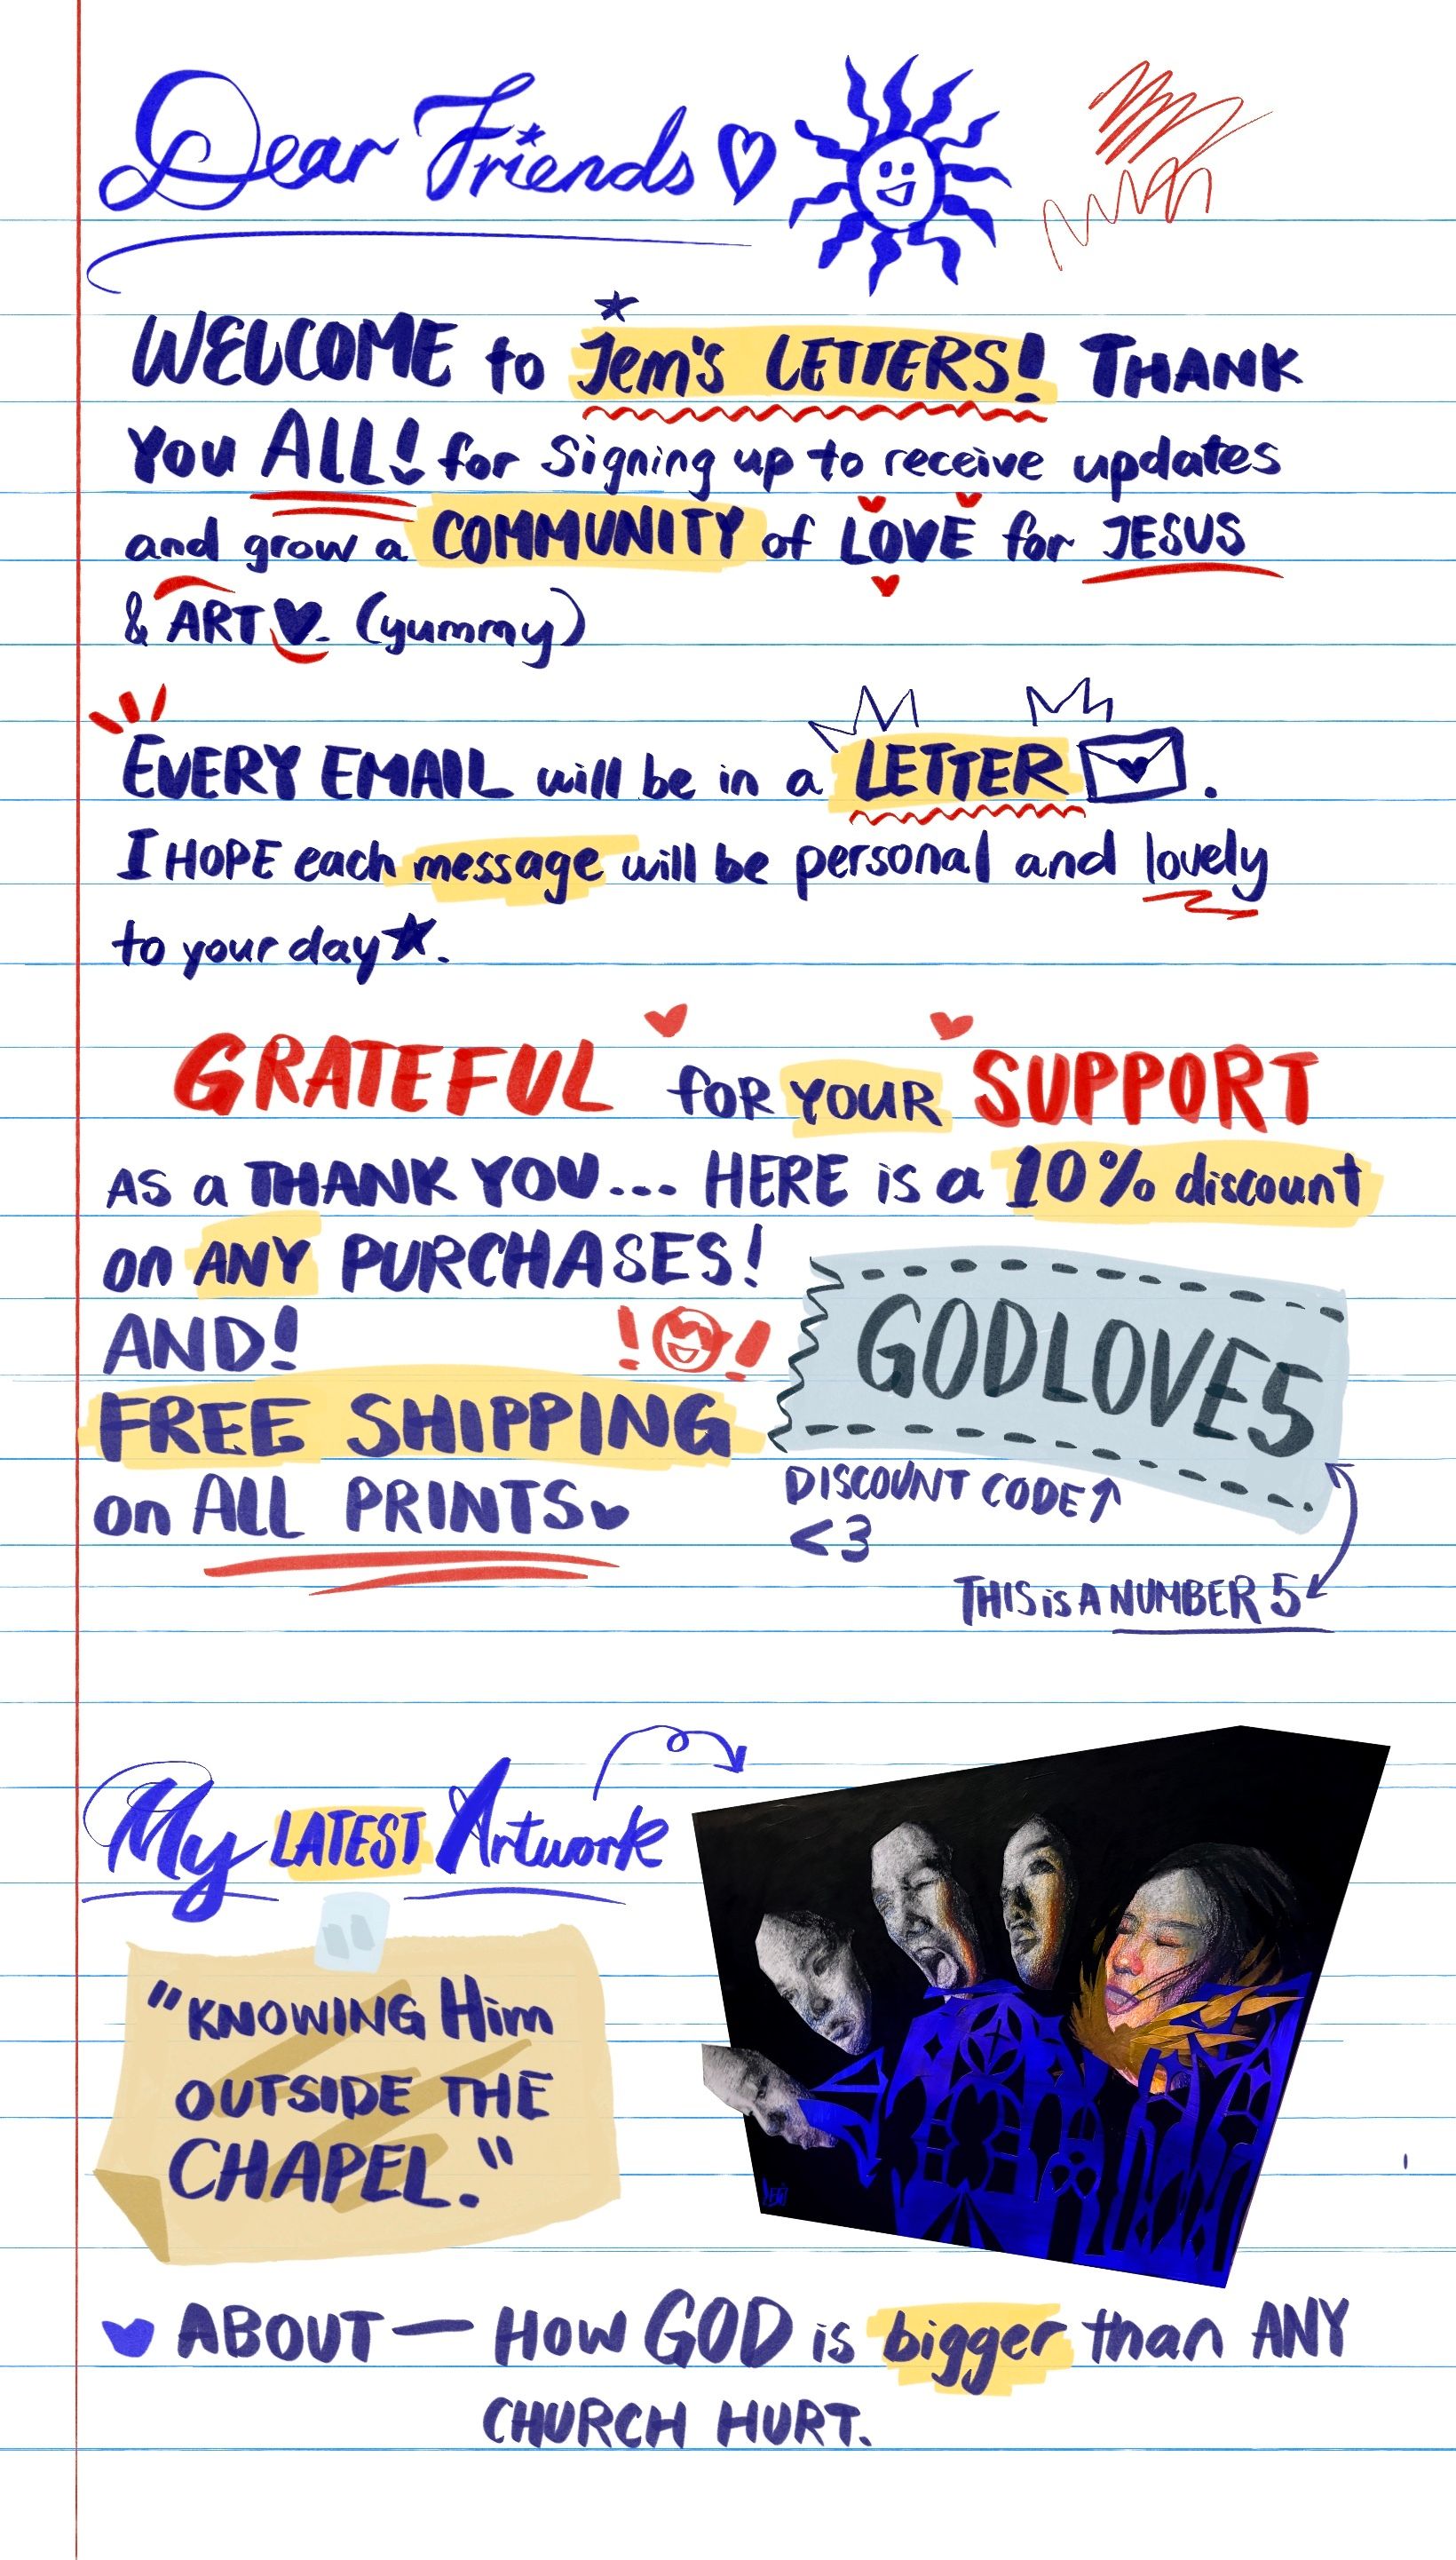 Dear Friends
WELCOME to Jem's LETTERS! THANK
You ALL! for Signing up to receive updates
and grow a COMMUNITY of LOVE for JESUS
& ART. (yummy)
EVERY EMAIL will be in a LETTER.
I HOPE each message will be personal and lovely
to your day.
GRATEFUL for YOUR SUPPORT
AS a THANK YOU... HERE is a 10% discount
on ANY PURCHASES!
AND!
! !
GODLOVE5
FREE SHIPPING
on ALL PRINTS
DISCOUNT CODE↑
<3
THIS is A NUMBER 5
My LATEST Artwork
"KNOWING Him
OUTSIDE THE
CHAPEL."
ABOUT — HOW GOD is bigger than ANY
CHURCH HURT.